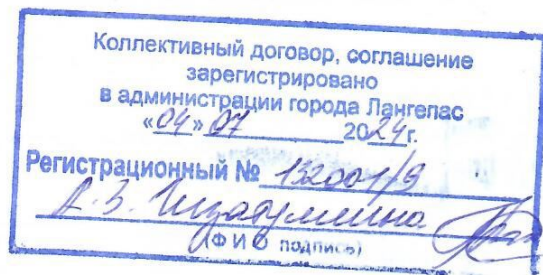 Коллективный договор, соглашение
зарегистрировано
в администрации города Лангепас
«04» 07 2024г.
Регистрационный № 132001/9
(Ф И О подпись)